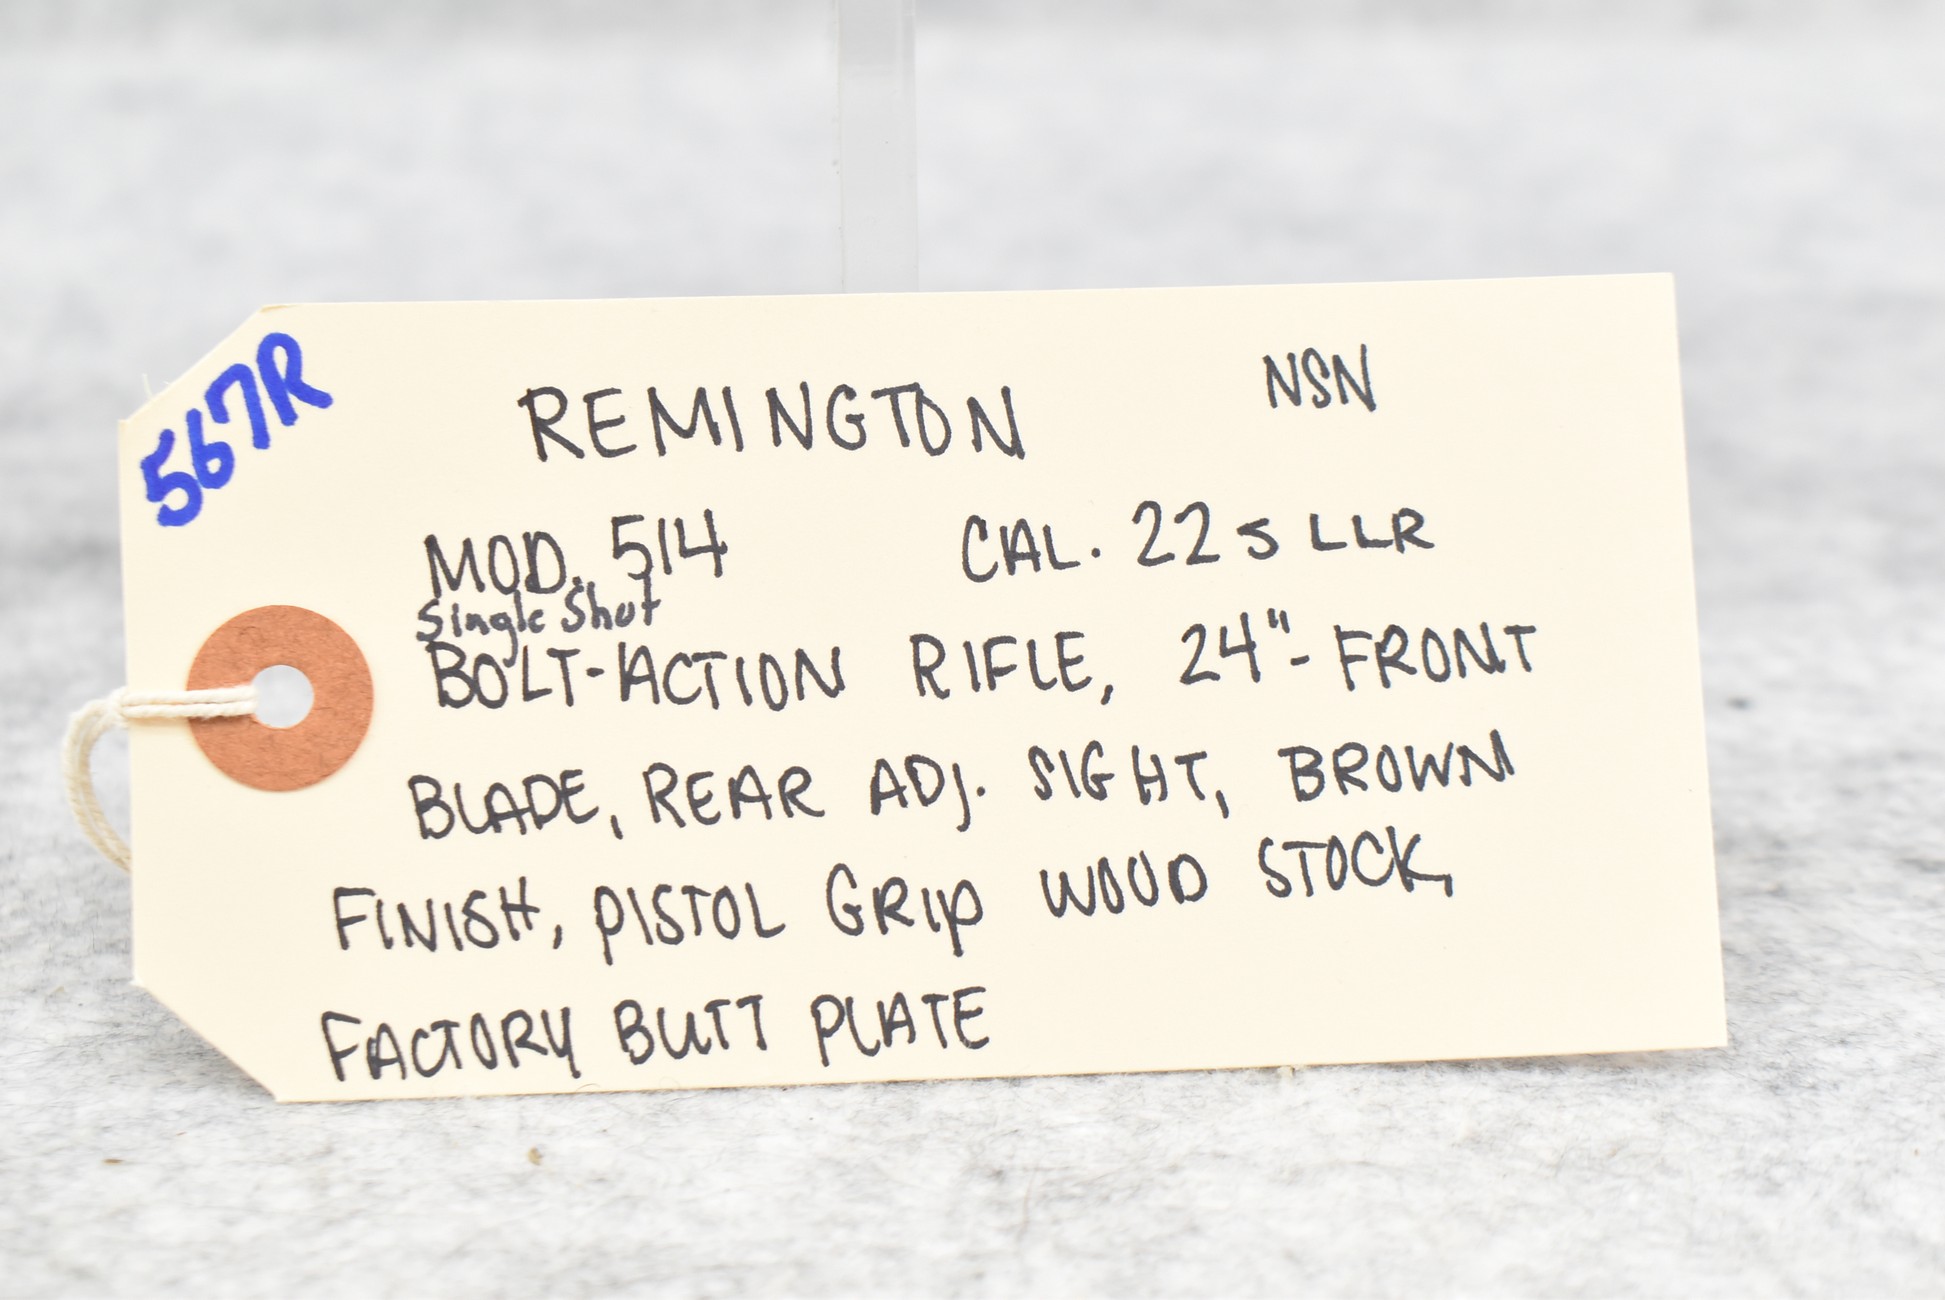 567R
REMINGTON NSN
MOD. 514 CAL. 22 S LLR
Single Shot
BOLT-ACTION RIFLE, 24"- FRONT
BLADE, REAR ADJ. SIGHT, BROWN
FINISH, PISTOL GRIP WOOD STOCK,
FACTORY BUTT PLATE